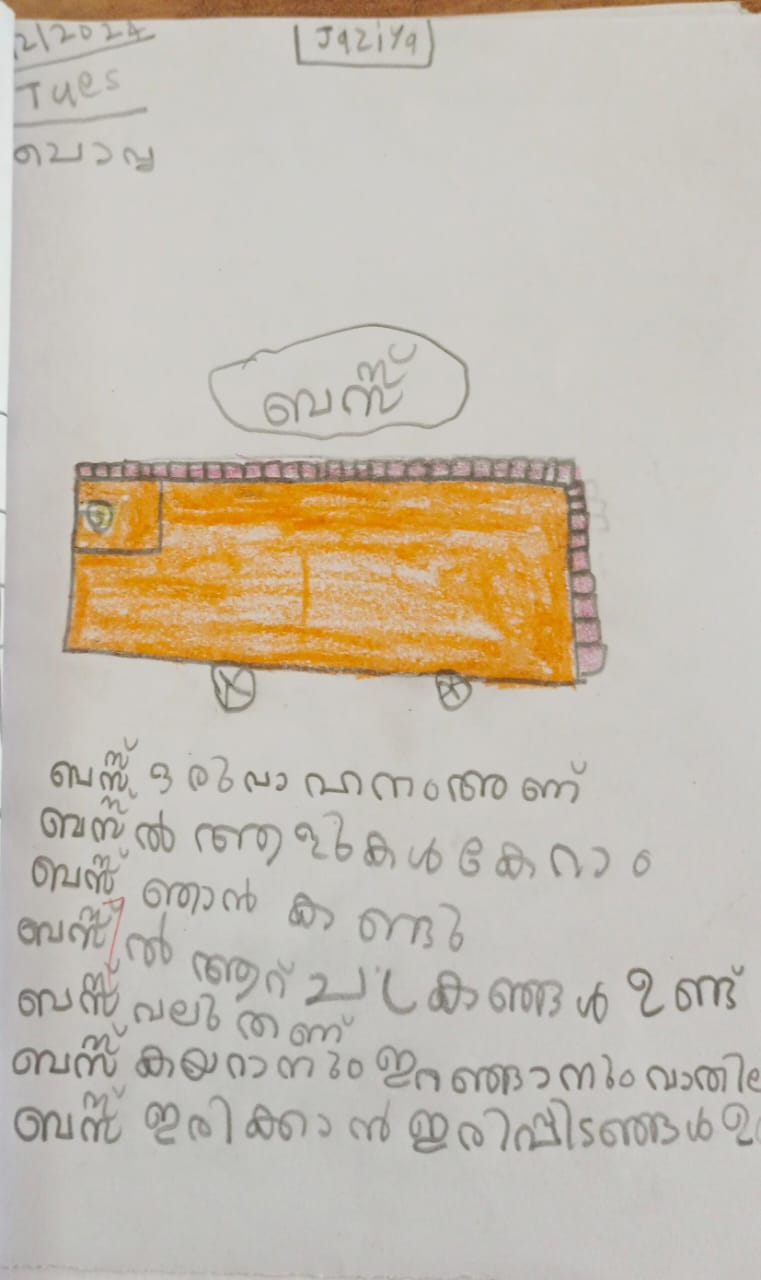 2/2024
Jaziya
Tues
ചൊവ്വ
ബസ്സ്
ബസ്സ് ഒരുവാഹനംആണ്
ബസ്സ്ൽ ആളുകൾ കേറാം
ബസ്സ് ഞാൻ കണ്ടു
ബസ്സ്ൽ ആറ് ചക്രങ്ങൾ ഉണ്ട്
ബസ്സ് വലുതണ്
ബസ്സ് കയറാനും ഇറങ്ങാനും
ബസ്സ് ഇരിക്കാൻ ഇരിപ്പിടങ്ങൾ